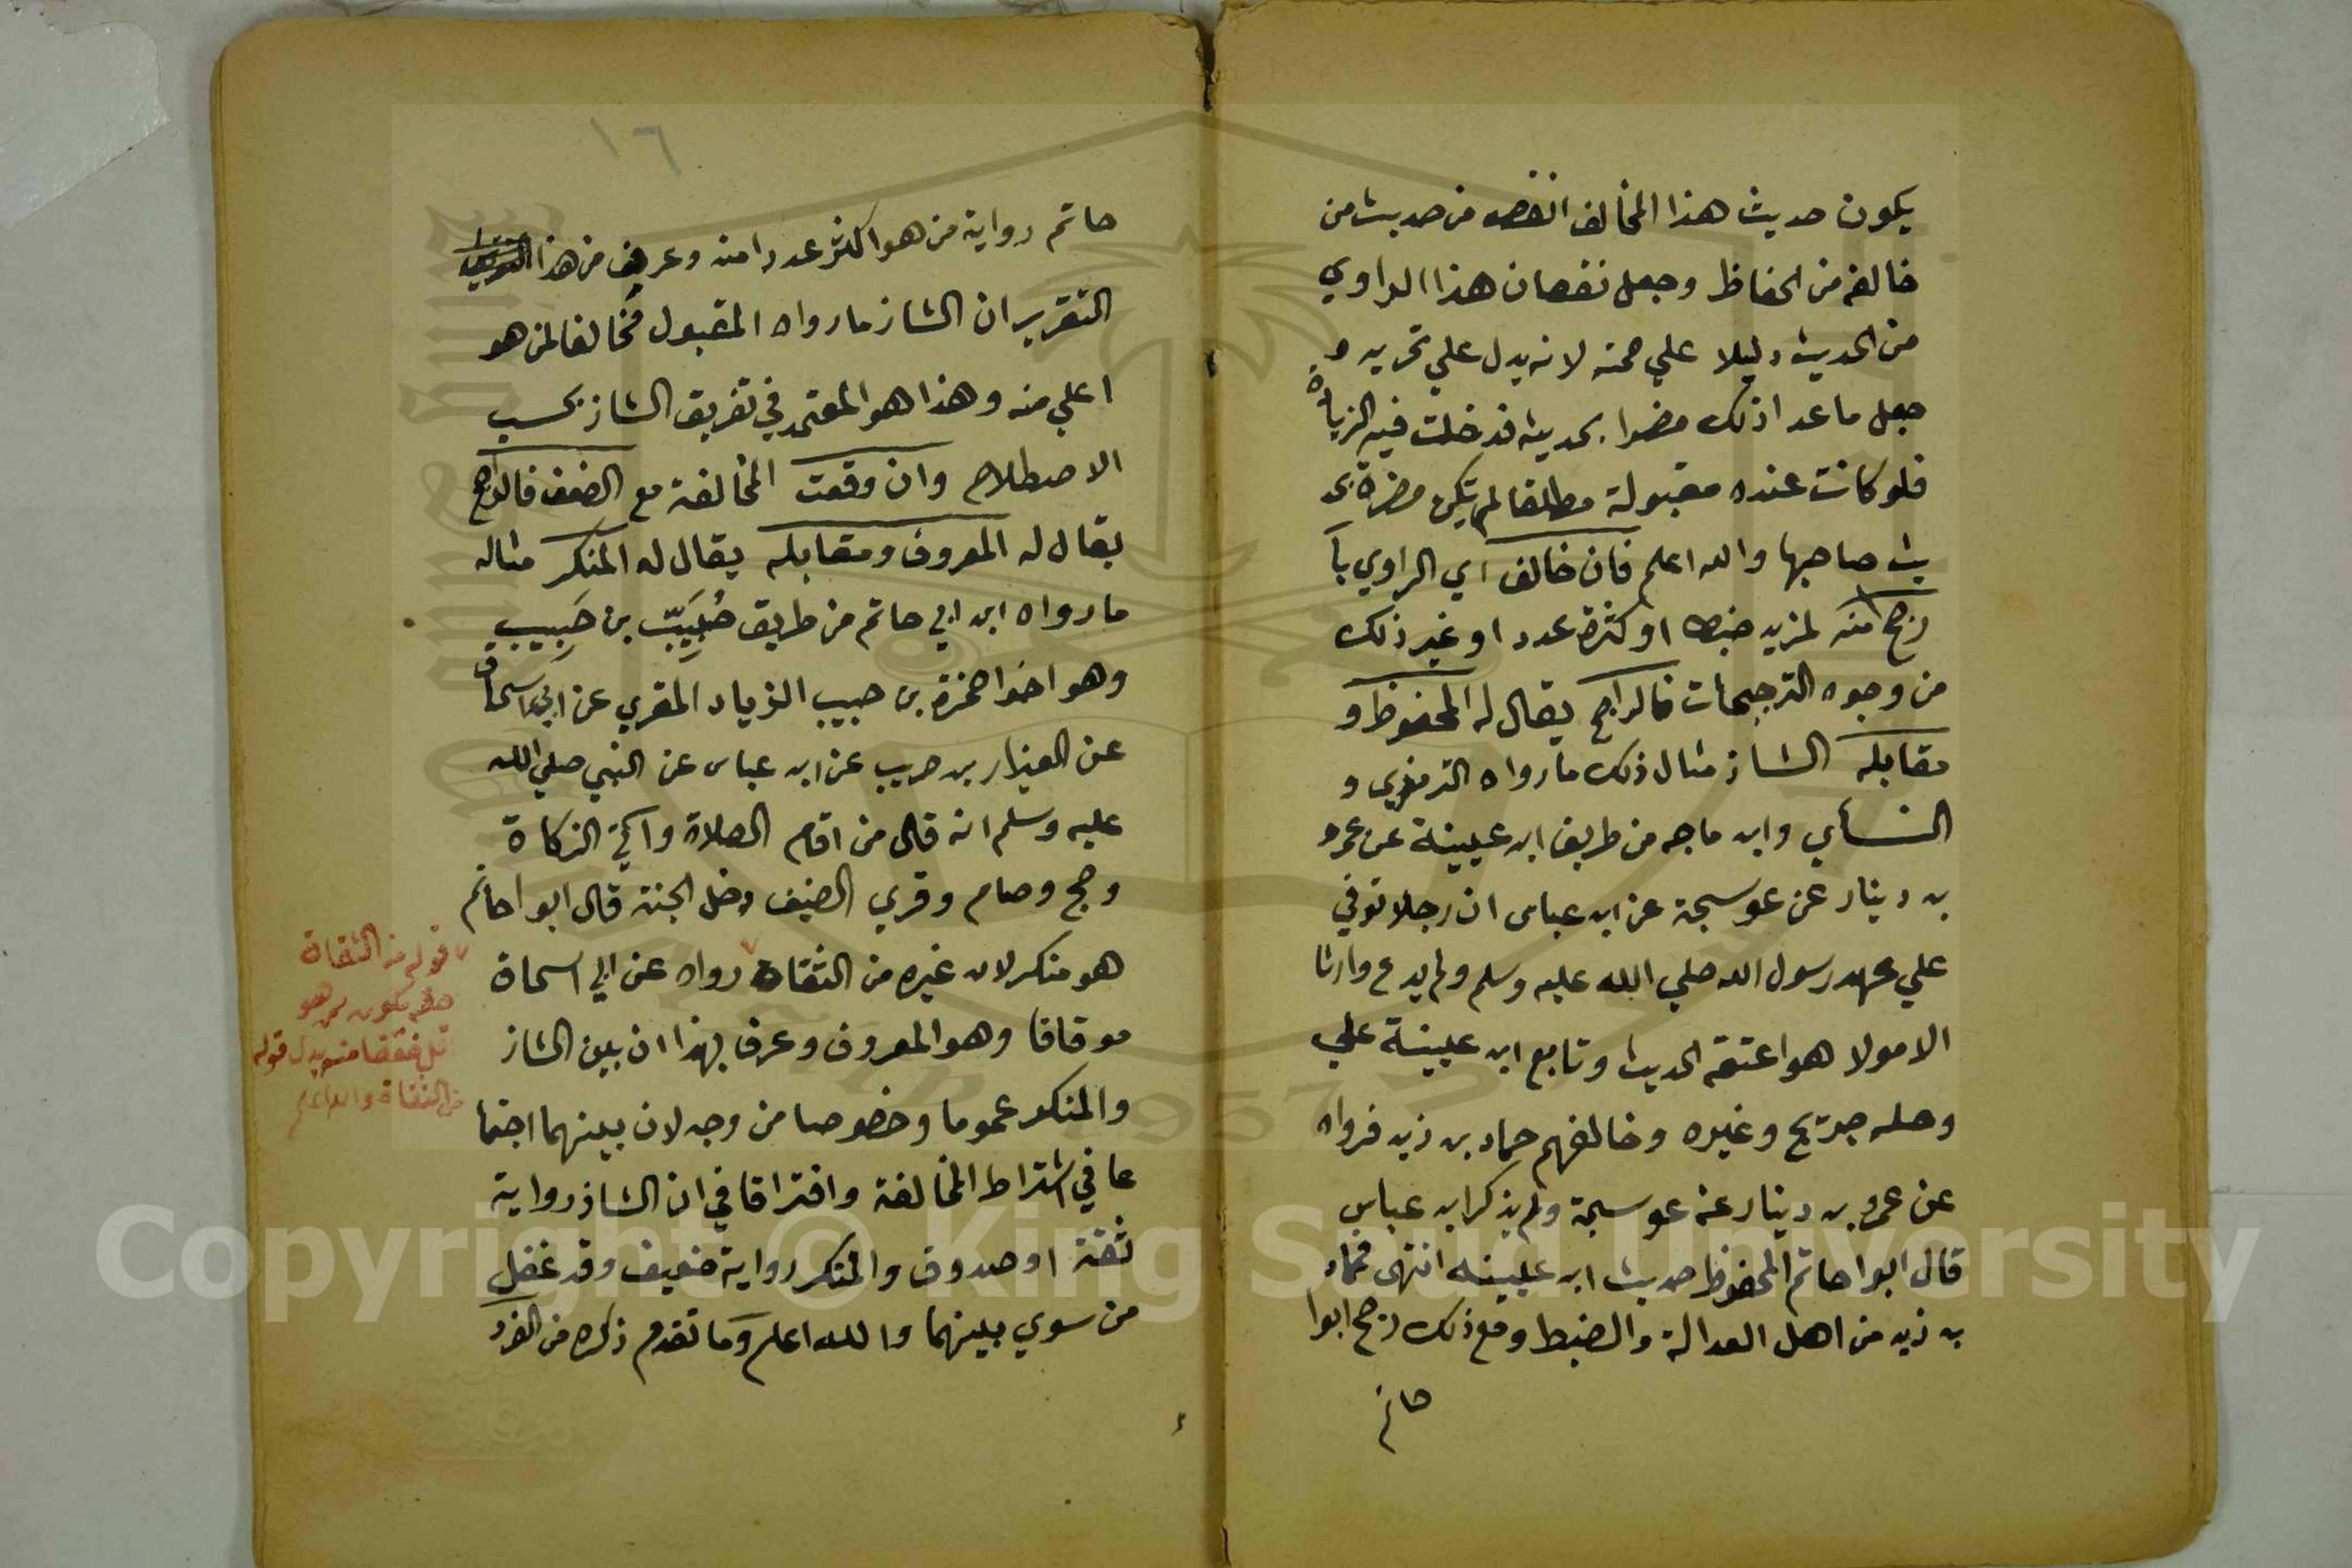 يكون حديث هذا المخالف انقص من حديث من
خالفه من الحفاظ وجعل نقصان هذا الراوي
من الحديث دليلا علي صحته لانه يدل علي تحريه و
جعل ما عدا ذلك مضرا بحديثه فدخلت فيه الزيادة
فلو كانت عنده مقبولة مطلقا لم تكن مضرة بحد
يث صاحبها والله اعلم فان خالف اي الراوي بآ
رجح منه لمزيد ضبط او كثرة عدد او غير ذلك
من وجوه الترجيحات فالراجح يقال له المحفوظ و
مقابله الشاذ مثال ذلك ما رواه الترمذي و
النسأي وابن ماجه من طريق ابن عيينة عن عمرو
بن دينار عن عوسجة عن ابن عباس ان رجلا توفي
علي عهد رسول الله صلي الله عليه وسلم ولم يدع وارثا
الا مولا هو اعتقه الحديث وتابع ابن عيينة علي
وصله جريج وغيره وخالفهم حماد بن زيد فرواه
عن عمرو بن دينار عن عوسجة ولم يذكر ابن عباس
قال ابوا حاتم المحفوظ حديث ابن عيينه انتهى فحماد
بن زيد من اهل العدالة والضبط ومع ذلك رجح ابوا
حاتم
١٦
حاتم رواية من هو اكثر عددا منه وعرف من هذا
التقرير ان الشاذ ما رواه المقبول مخالفا لمن هو
اعلي منه وهذا هو المعتمد في تعريف الشاذ بحسب
الاصطلاح وان وقعت المخالفة مع الضعف فالراجح
يقال له المعروف ومقابله يقال له المنكر مثاله
ما رواه ابن ابي حاتم من طريق حُبَيِّب بن حَبِيب
وهو اخوا حمزة بن حبيب الزيات المقري عن ابي اسحاق
عن العيزار بن حريب عن ابن عباس عن النبي صلي الله
عليه وسلم انه قال من اقام الصلاة وآتي الزكاة
وحج وصام وقري الضيف دخل الجنة قال ابوا حاتم
هو منكر لان غيره من الثقاة رواه عن ابي اسحاق
موقافا وهو المعروف وعرف بهذا ان بين الشاذ
والمنكر عموما وخصوصا من وجه لان بينهما اجتما
عا في اشتراط المخالفة وافتراقا في ان الشاذ رواية
ثقة او صدوق والمنكر رواية ضعيف وقد غفل
من سوي بينهما والله اعلم وما تقدم ذكره من الفرد
قوله من الثقاة
منه بدل قوله
من الثقاة والله اعلم
Copyright © King Saud University
1957